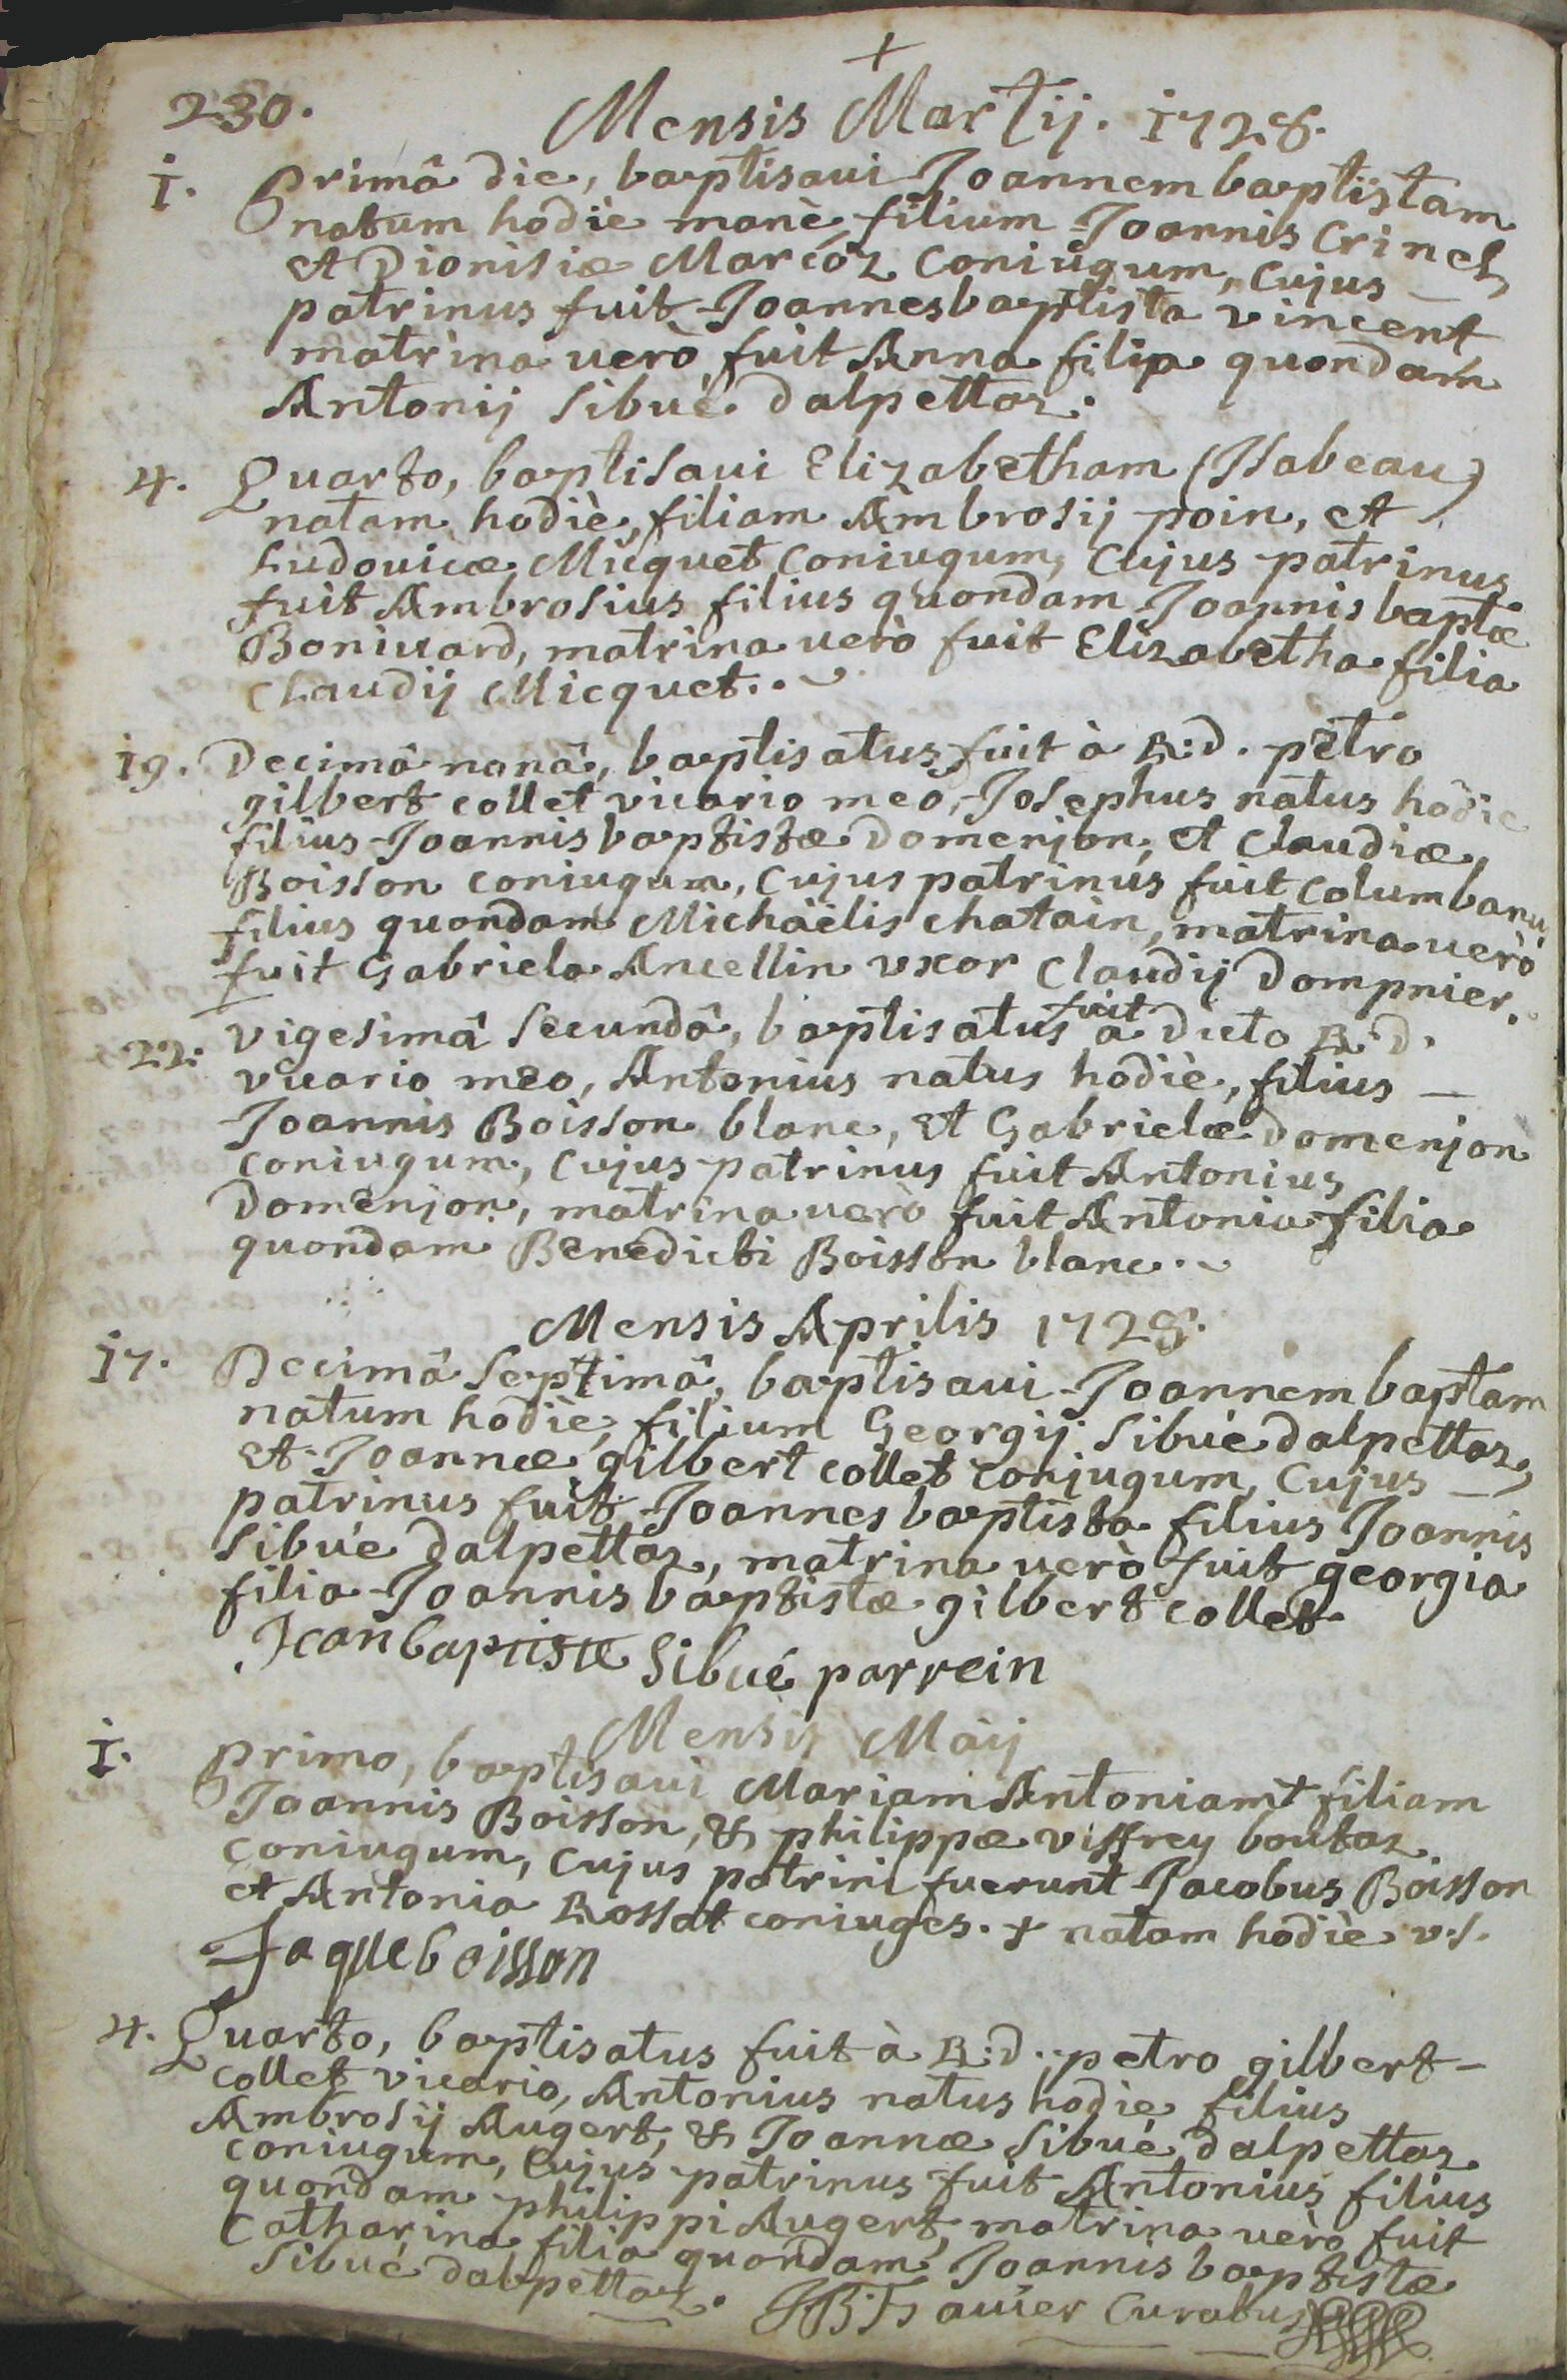 +
230. Mensis Martij. 1728.
1. Primâ die, baptisaui Joannem baptistam
natum hodie manè, filium Joannis Crinel,
et Dionisiæ Marcoz Coniugum, Cujus —
patrinus fuit Joannesbaptista vincent
matrina uerò fuit Anna filia quondam
Antonij Sibué dalpettaz.
4. Quarto, baptisaui Elizabetham (Isabeau)
natam hodiè, filiam Ambrosij poin, et
Ludouicæ Micquet Coniugum, Cujus patrinus
fuit Ambrosius filius quondam Joannis baptæ
Boniuard, matrina uerò fuit Elizabetha filia
Claudij Micquet..
19. Decimâ nonâ, baptisatus fuit à R:d. petro
gilbert collet vicario meo, Josephus natus hodie
filius Joannisbaptistæ Domenjon, et Claudiæ
Boisson coniugum, Cujus patrinus fuit Columbanus
filius quondam Michäelis chatain, matrina uerò
fuit Gabriela Ancellin vxor Claudij Dompnier.
22. vigesimâ secundâ, baptisatus fuit a dicto R:d.
vicario meo, Antonius natus hodiè, filius —
Joannis Boisson blanc, et Gabrielæ Domenjon
coniugum, Cujus patrinus fuit Antonius
Domenjon, matrina uerò fuit Antonia filia
quondam Benedicti Boisson blanc..
Mensis Aprilis 1728.
17. Decimâ Septimâ, baptisaui Joannem baptam
natum hodiè, filium Georgij Sibué dalpettaz,
et Joannæ gilbert collet conjugum, Cujus —
patrinus fuit Joannes baptista filius Joannis
Sibué dalpettaz, matrina uerò fuit georgia
filia Joannis baptistæ gilbert collet
Jean baptiste Sibué parrein
Mensis Maij
1. primo, baptisaui Mariam Antoniam + filiam
Joannis Boisson, & philippæ viffrey boutaz
Coniugum, Cujus patrini fuerunt Jacobus Boisson
et Antonia Rossat coniuges. + natam hodiè v.s.
Jaque boisson
4. Quarto, baptisatus fuit à R:d. petro gilbert-
collet vicario, Antonius natus hodie filius
Ambrosij Augert, & Joannæ Sibué dalpettaz
coniugum, Cujus patrinus fuit Antonius filius
quondam philippi Augert, matrina uèro fuit
Catharina filia quondam Joannis baptistæ
Sibué dalpettaz. Curatus